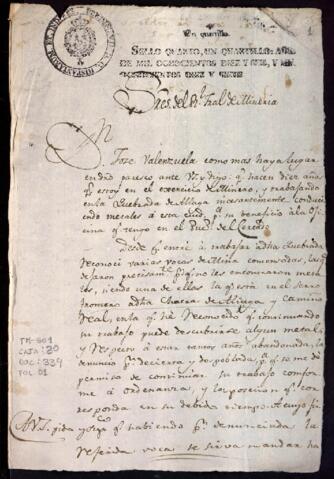 Un quartillo.
SELLO QUARTO, UN QUARTILLO, AÑOS
DE MIL OCHOCIENTOS DIEZ Y SEIS, Y MIL
OCHOCIENTOS DIEZ Y SIETE
Sres. del Rl. Tral. de Mineria
Jose Valenzuela como mas haya lugar
en dro paresco ante VS. y digo: qe. hacen diez años
qe. estoy en el exercicio de Minero, y trabajando
en la Quebrada de incesantemente conducien
do metales a esta ciud. pa. su beneficio a la Ofi
cina qe. tengo en el Pueo. del Cercado
Desde qe. entré á trabajar a dha Quebrada
reconocí varias vocas de Mina comensadas, las qe.
dejaron precisamte. pr. qe. no les encontraron meta
les, siendo una de ellas la qe. está en el serro
promero a dha Chacra de y Camino
Real, en la qe. he reconocido qe. continuando
su trabajo puede descubrirse algun metal
y respecto á estar tantos años abandonada, la
denuncio pr. decierta y despoblada, pa. qe. se me dé
permiso de continuar su trabajo confor
me á ordenanza, y la posecion qe. cor
responda en su debido tiempo. A cuyo fin
A VS. pido y supco. qe. habiendo pr. denunciada la
referida voca se sirva mandar ha
TM-GO1
CAJA: 20
DOC: 334
FOL: 01